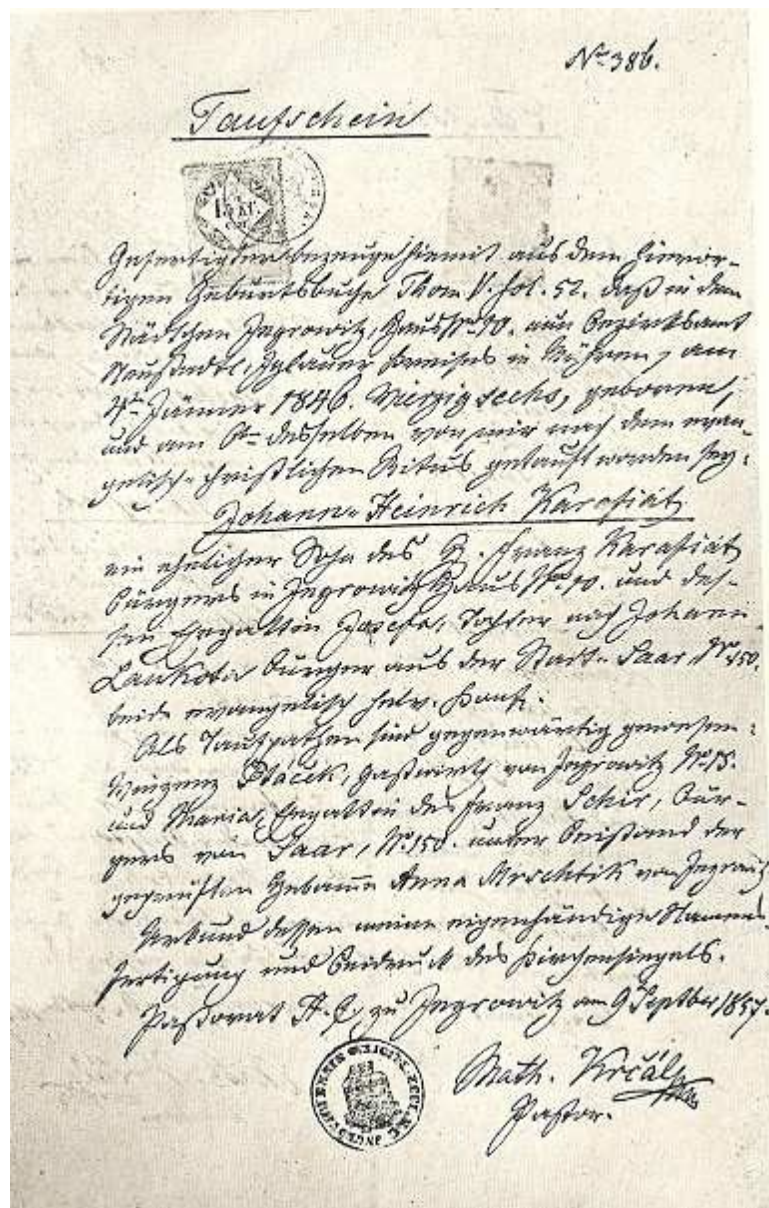 No 386.
Taufschein
15 Kr.
Gefertigter bezeuget hiemit aus dem hieror-
tigen Geburtsbuche Thom. V. fol. 52. daß in dem
Städtchen Ingrowitz, Haus No 90. zum Bezirksamt
Neustadtl, Iglauer Kreises in Mähren, am
4ten Jänner 1846. Vierzig sechs, geboren,
und am 6ten desselben von mir nach dem evan-
gelisch-christlichen Ritus getauft worden sey:
Johann Heinrich Karafiát
ein ehelicher Sohn des Franz Karafiát
Bürgers in Ingrowitz Haus No 90. und des-
sen Ehegattin Josefa, Tochter nach Johann
Laukota Bürger aus der Stadt Saar, No 150.
beide evangelisch helv. Konf.
Als Taufpathen sind gegenwärtig gewesen:
Ptáček, Gastwirth von Ingrowitz No 15.
und Maria, Ehegattin des Franz Schir, Bür-
gers von Saar, No 150. unter Beistand der
geprüften Hebamme Anna Mrschtik von Ingrowitz
Urkund dessen meine eigenhändige Namens-
fertigung und Beidruck des Kirchensiegels.
Pastorat H. C. zu Ingrowitz am 9 Septber 1857.
Math. Krčál
Pastor.